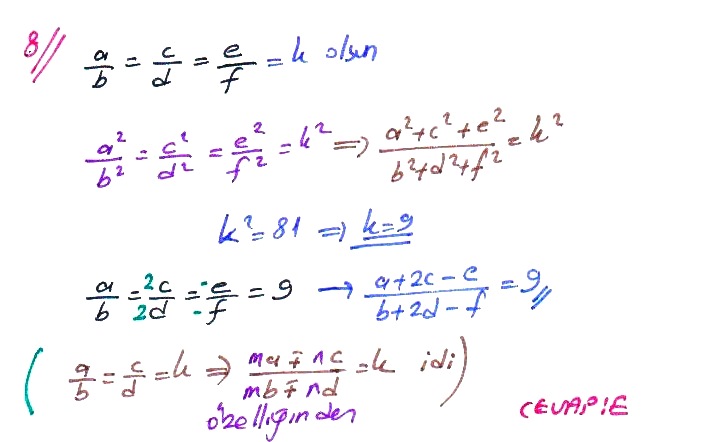 8// a/b = c/d = e/f = k olsun
a²/b² = c²/d² = e²/f² = k² ⇒ (a²+c²+e²)/(b²+d²+f²) = k²
k² = 81 ⇒ k=9
a/b = 2c/2d = -e/-f = 9 → (a+2c-e)/(b+2d-f) = 9//
( a/b = c/d = k ⇒ (ma∓nc)/(mb∓nd) = k idi )
özelliğinden
CEVAP:E